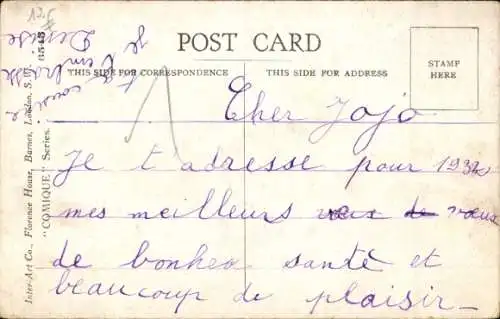 POST CARD
THIS SIDE FOR CORRESPONDENCE
THIS SIDE FOR ADDRESS
STAMP
HERE
Cher Jojo
Je t adresse pour 1932
mes meilleurs de vœux
de bonheu santé et
beaucoup de plaisir
Je t'embrasse
ta cousine
Denise
Inter-Art Co., Florence House, Barnes, London, S.W.
"COMIQUE" Series.